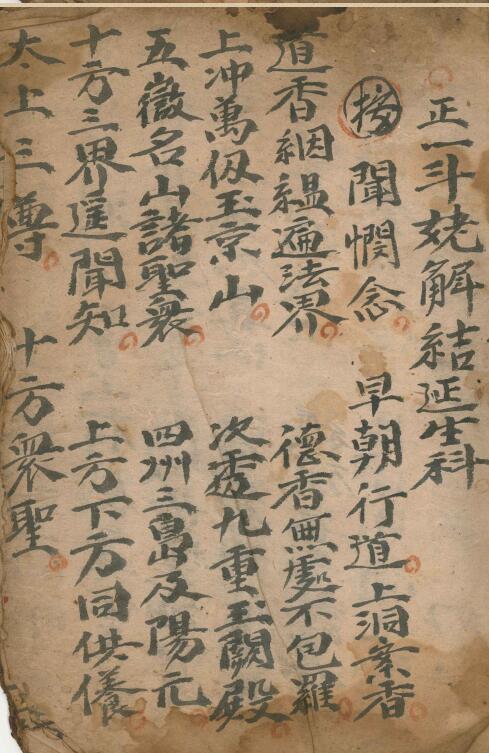 正一斗姥解結延生科
聞憫念 早朝行道 上洞案香
道香絪縕遍法界 德香無處不包羅
上冲萬仭玉京山 次透九重玉闕殿
五嶽名山諸聖衆 四州三島及陽元
十方三界遥聞知 上方下方同供養
太上三尊 十方衆聖